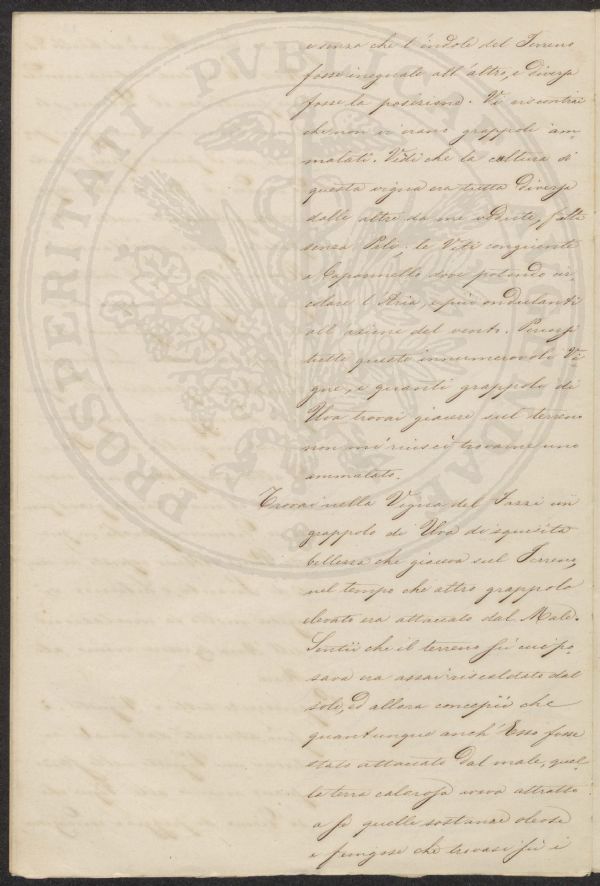 e senza che l'indole del Terreno
fosse ineguale all'altro, e diversa
fosse la posizione. Vi riscontrai
che non vi erano grappoli am-
malati. Vidi che la coltura di
questa vigna era tutta diversa
dalle altre da me vedute, fatta
senza Pali, le Viti congiunte
a Capannello dove potendo cir-
colare l'Aria, e più ondulanti
all'azione del vento. Percorsi
tutte queste innumerevoli Vi-
gne, e quanti grappoli di
Uva trovai giacere sul terreno
non mi riuscì trovarne uno
ammalato.
Trovai nella Vigna del un
grappolo di Uva di squisita
bellezza che giaceva sul Terreno,
nel tempo che altro grappolo
elevato era attaccato dal Male.
Sentii che il terreno su cui po-
sava era assai riscaldato dal
sole, ed allora concepii che
quantunque anch'Esso fosse
stato attaccato dal male, quel-
la terra calorosa aveva attratto
a se quelle sostanze oleose
e fungose che trovasi su i
PROSPERITATI PUBLICAE AUGENDAE